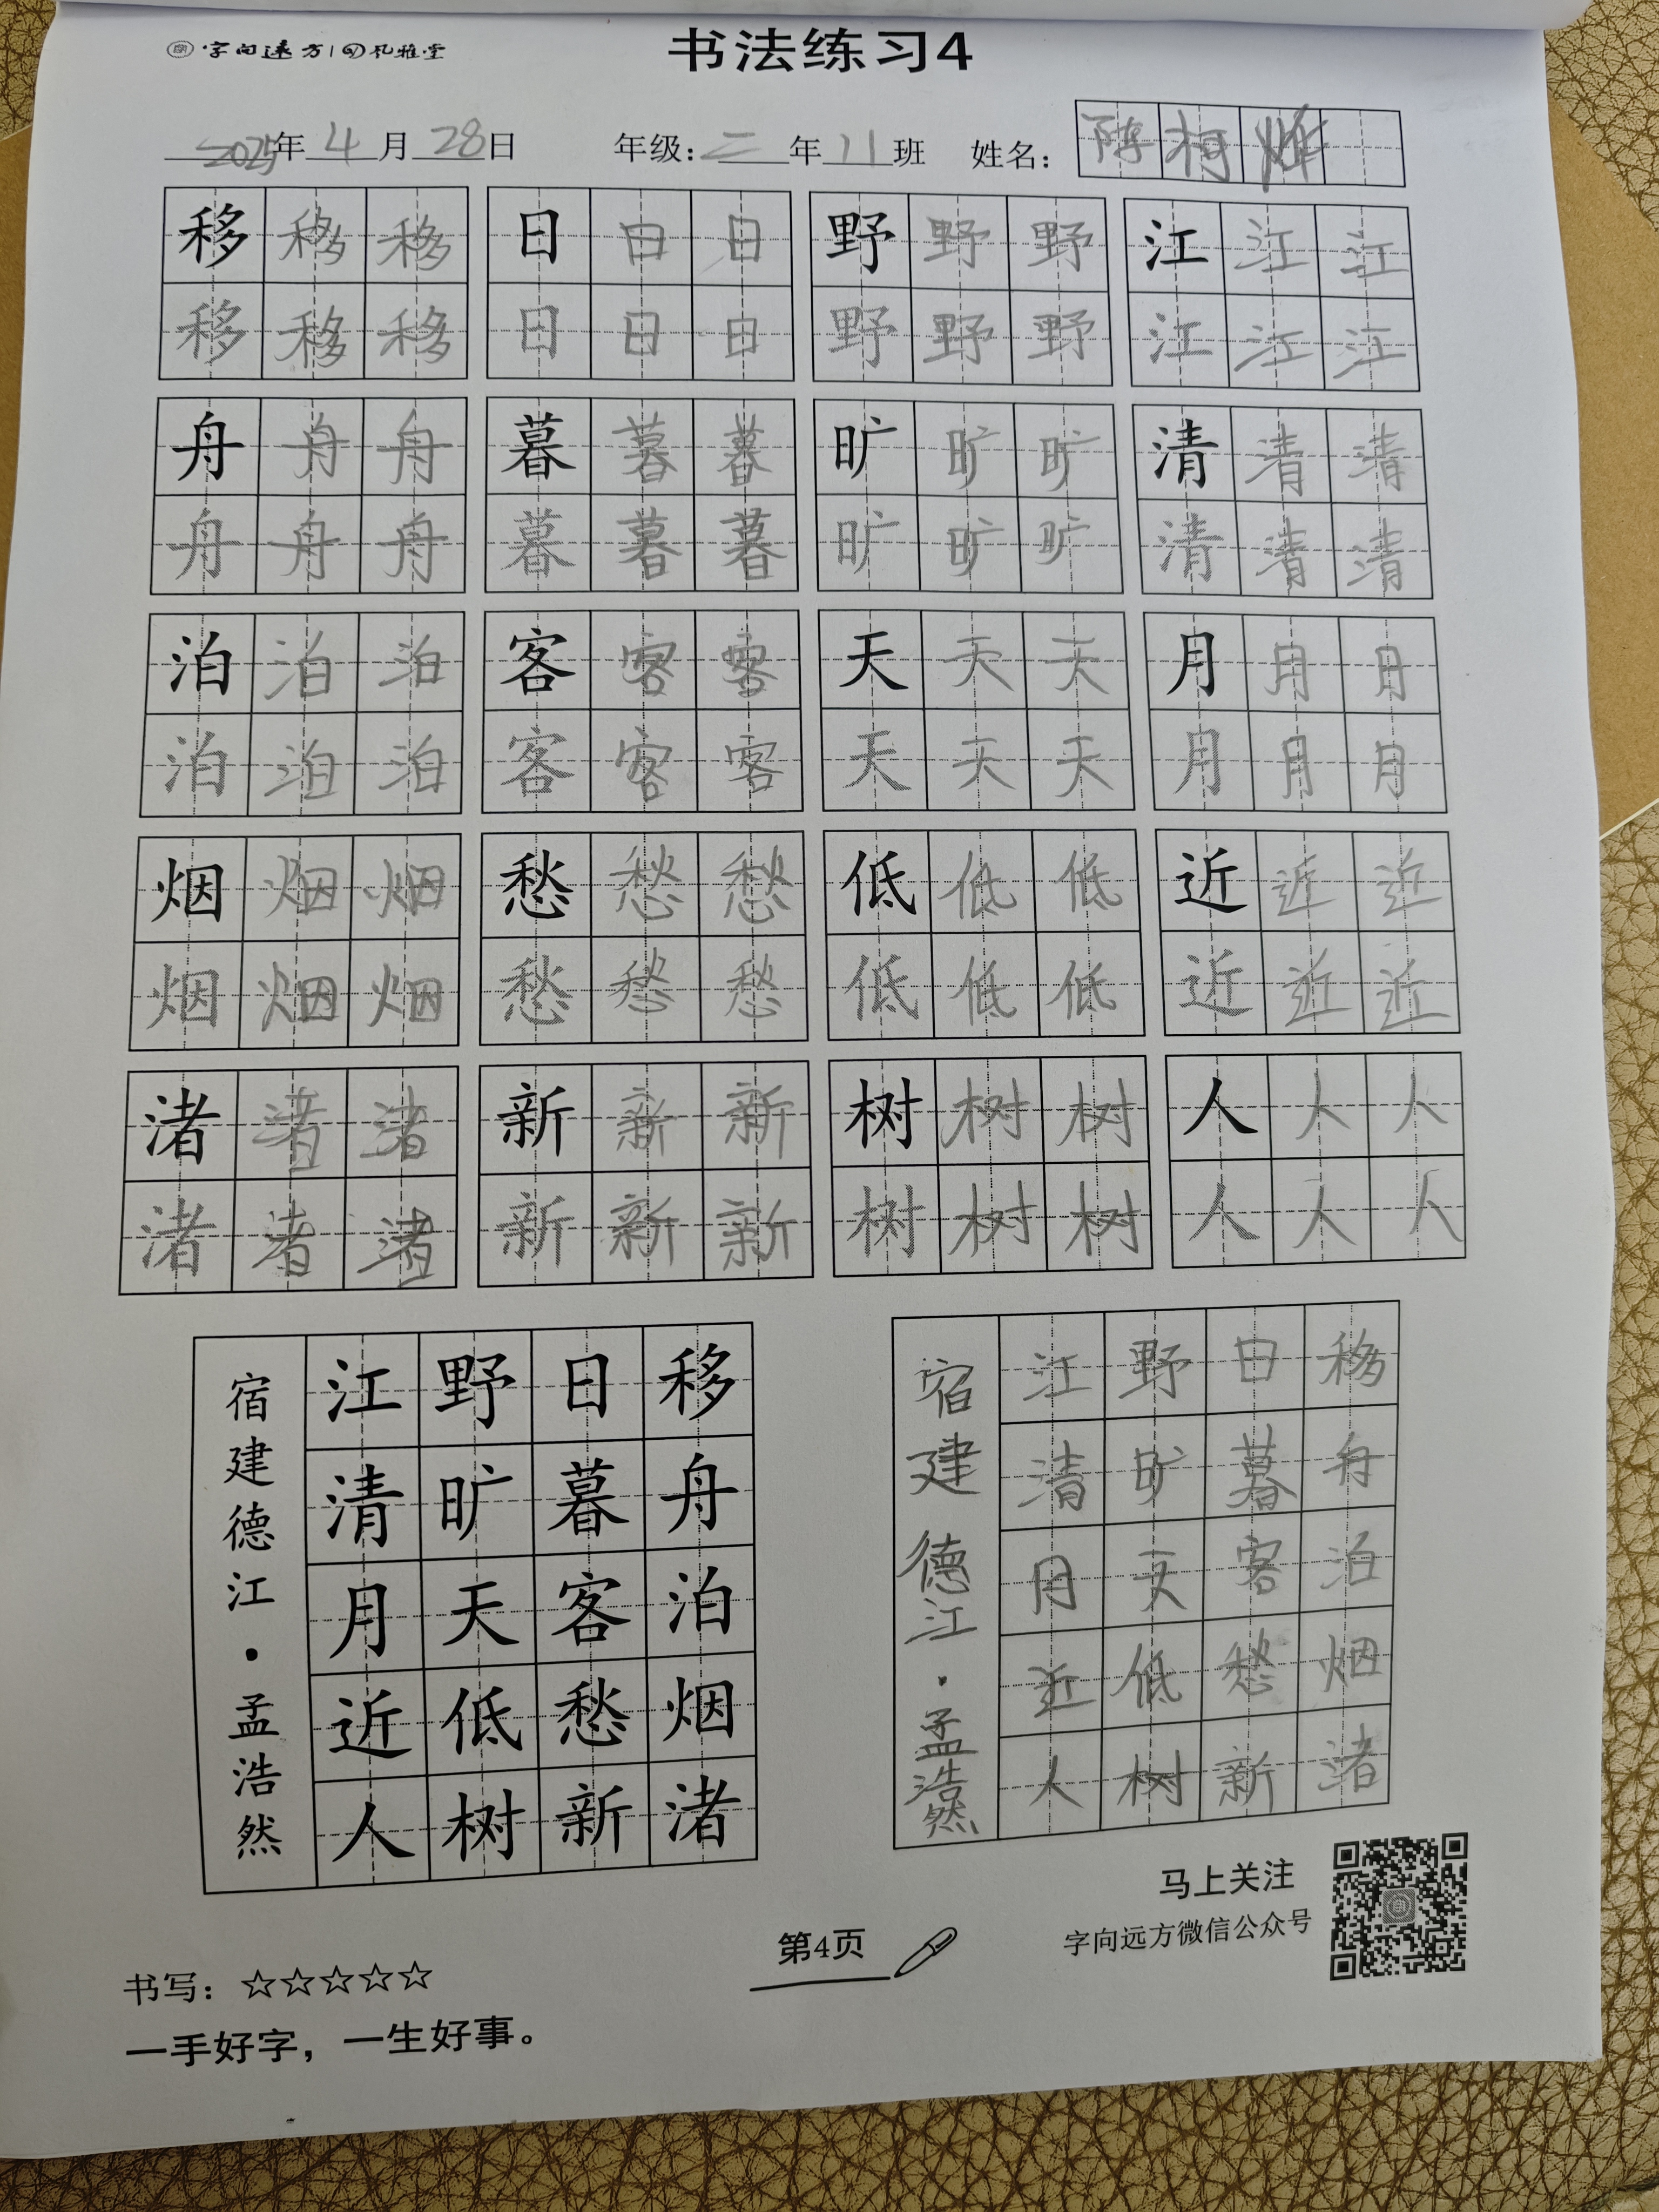 字向远方 礼雅堂
书法练习4
2025年4月28日 年级:二年11班 姓名:陈柯烨
移移移 日日日 野野野 江江江
移移移 日日日 野野野 江江江
舟舟舟 暮暮暮 旷旷旷 清清清
舟舟舟 暮暮暮 旷旷旷 清清清
泊泊泊 客客客 天天天 月月月
泊泊泊 客客客 天天天 月月月
烟烟烟 愁愁愁 低低低 近近近
烟烟烟 愁愁愁 低低低 近近近
渚渚渚 新新新 树树树 人人人
渚渚渚 新新新 树树树 人人人
移舟泊烟渚
日暮客愁新
野旷天低树
江清月近人
宿建德江·孟浩然
移舟泊烟渚
日暮客愁新
野旷天低树
江清月近人
宿建德江·孟浩然
马上关注
字向远方微信公众号
第4页
书写:☆☆☆☆☆
一手好字,一生好事。